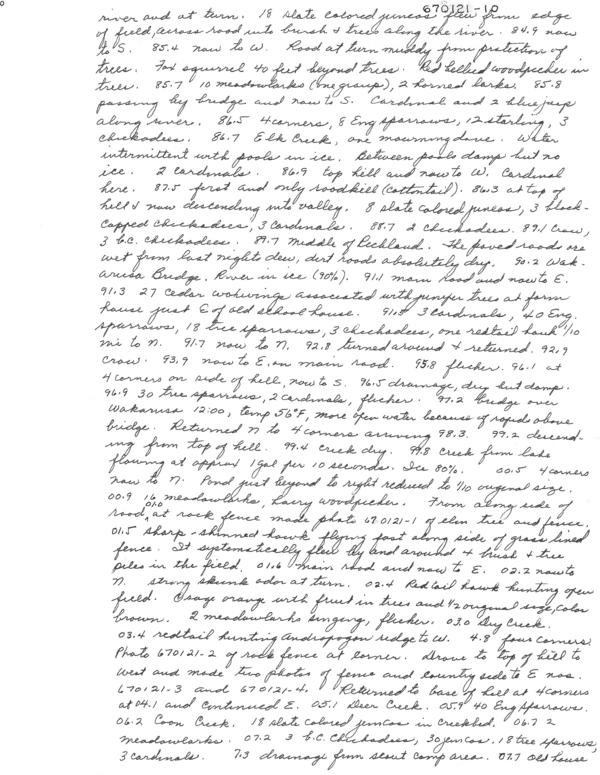 670121-10
river and at turn. 18 slate colored juncos flew from edge
of field, across road into brush & trees along the river. 84.9 now
to S. 85.4 now to W. Road at turn muddy from protection of
trees. Fox squirrel 40 feet beyond trees. Red bellied woodpecker in
trees. 85.7 10 meadowlarks (one group), 2 horned larks. 85.8
passing by bridge and now to S. Cardinal and 2 bluejays
along river. 86.5 4 corners, 8 Eng sparrows, 12 starling, 3
chickadees. 86.7 Elk Creek, one mourning dove. Water
intermittent with pools in ice. Between pools damp but no
ice. 2 cardinals. 86.9 top hill and now to W. Cardinal
here. 87.5 first and only roadkill (cottontail). 86.3 at top of
hill & now descending into valley. 8 slate colored juncos, 3 black-
capped chickadees, 3 cardinals. 88.7 2 chickadees. 89.1 crow,
3 b.c. chickadees. 89.7 middle of Richland. The paved roads are
wet from last nights dew, dirt roads absolutely dry. 90.2 Wak-
arusa Bridge. River in ice (90%). 91.1 main road and now to E.
91.3 27 Cedar waxwings associated with juniper trees at farm
house just E of old school house. 91.5 3 Cardinals, 40 Eng.
sparrows, 18 tree sparrows, 3 chickadees, one redtail hawk 1/10
mi to N. 91.7 now to N. 92.8 turned around & returned. 92.9
crow. 93.9 now to E. on main road. 95.8 flicker. 96.1 at
4 corners on side of hill, now to S. 96.5 drainage, dry but damp.
96.9 30 tree sparrows, 2 cardinals, flicker. 97.2 bridge over
Wakarusa 12:00, temp 56°F, more open water because of rapids above
bridge. Returned N to 4 corners arriving 98.3. 99.2 descend-
ing from top of hill. 99.4 creek dry. 99.8 creek from lake
flowing at approx 1 gal per 10 seconds. Ice 80%. 00.5 4 corners
now to N. Pond just beyond to right reduced to 1/10 original size.
00.9 16 meadowlarks, hairy woodpecker. From along side of
road 01.0 at rock fence made photo 670121-1 of elm tree and fence.
01.5 sharp-shinned hawk flying fast along side of grass lined
fence. It systematically flew by and around 4 brush & tree
piles in the field. 01.6 main road and now to E. 02.2 now to
N. strong skunk odor at turn. 02.4 Red tail hawk hunting open
field. Osage orange with fruit in trees and 1/2 original size, color
brown. 2 meadowlarks singing, flicker. 03.0 Dry Creek.
03.4 redtail hunting Andropogon ridge to W. 4.8 four corners.
Photo 670121-2 of rock fence at corner. Drove to top of hill to
West and made two photos of fence and country side to E nos.
670121-3 and 670121-4. Returned to base of hill at 4 corners
at 04.1 and continued E. 05.1 Deer Creek. 05.9 40 Eng sparrows.
06.2 Coon Creek. 18 slate colored juncos in creekbed. 06.7 2
meadowlarks. 07.2 3 b.c. chickadees, 30 juncos. 18 tree sparrows,
3 cardinals. 7.3 drainage from scout camp area. 07.7 Old house